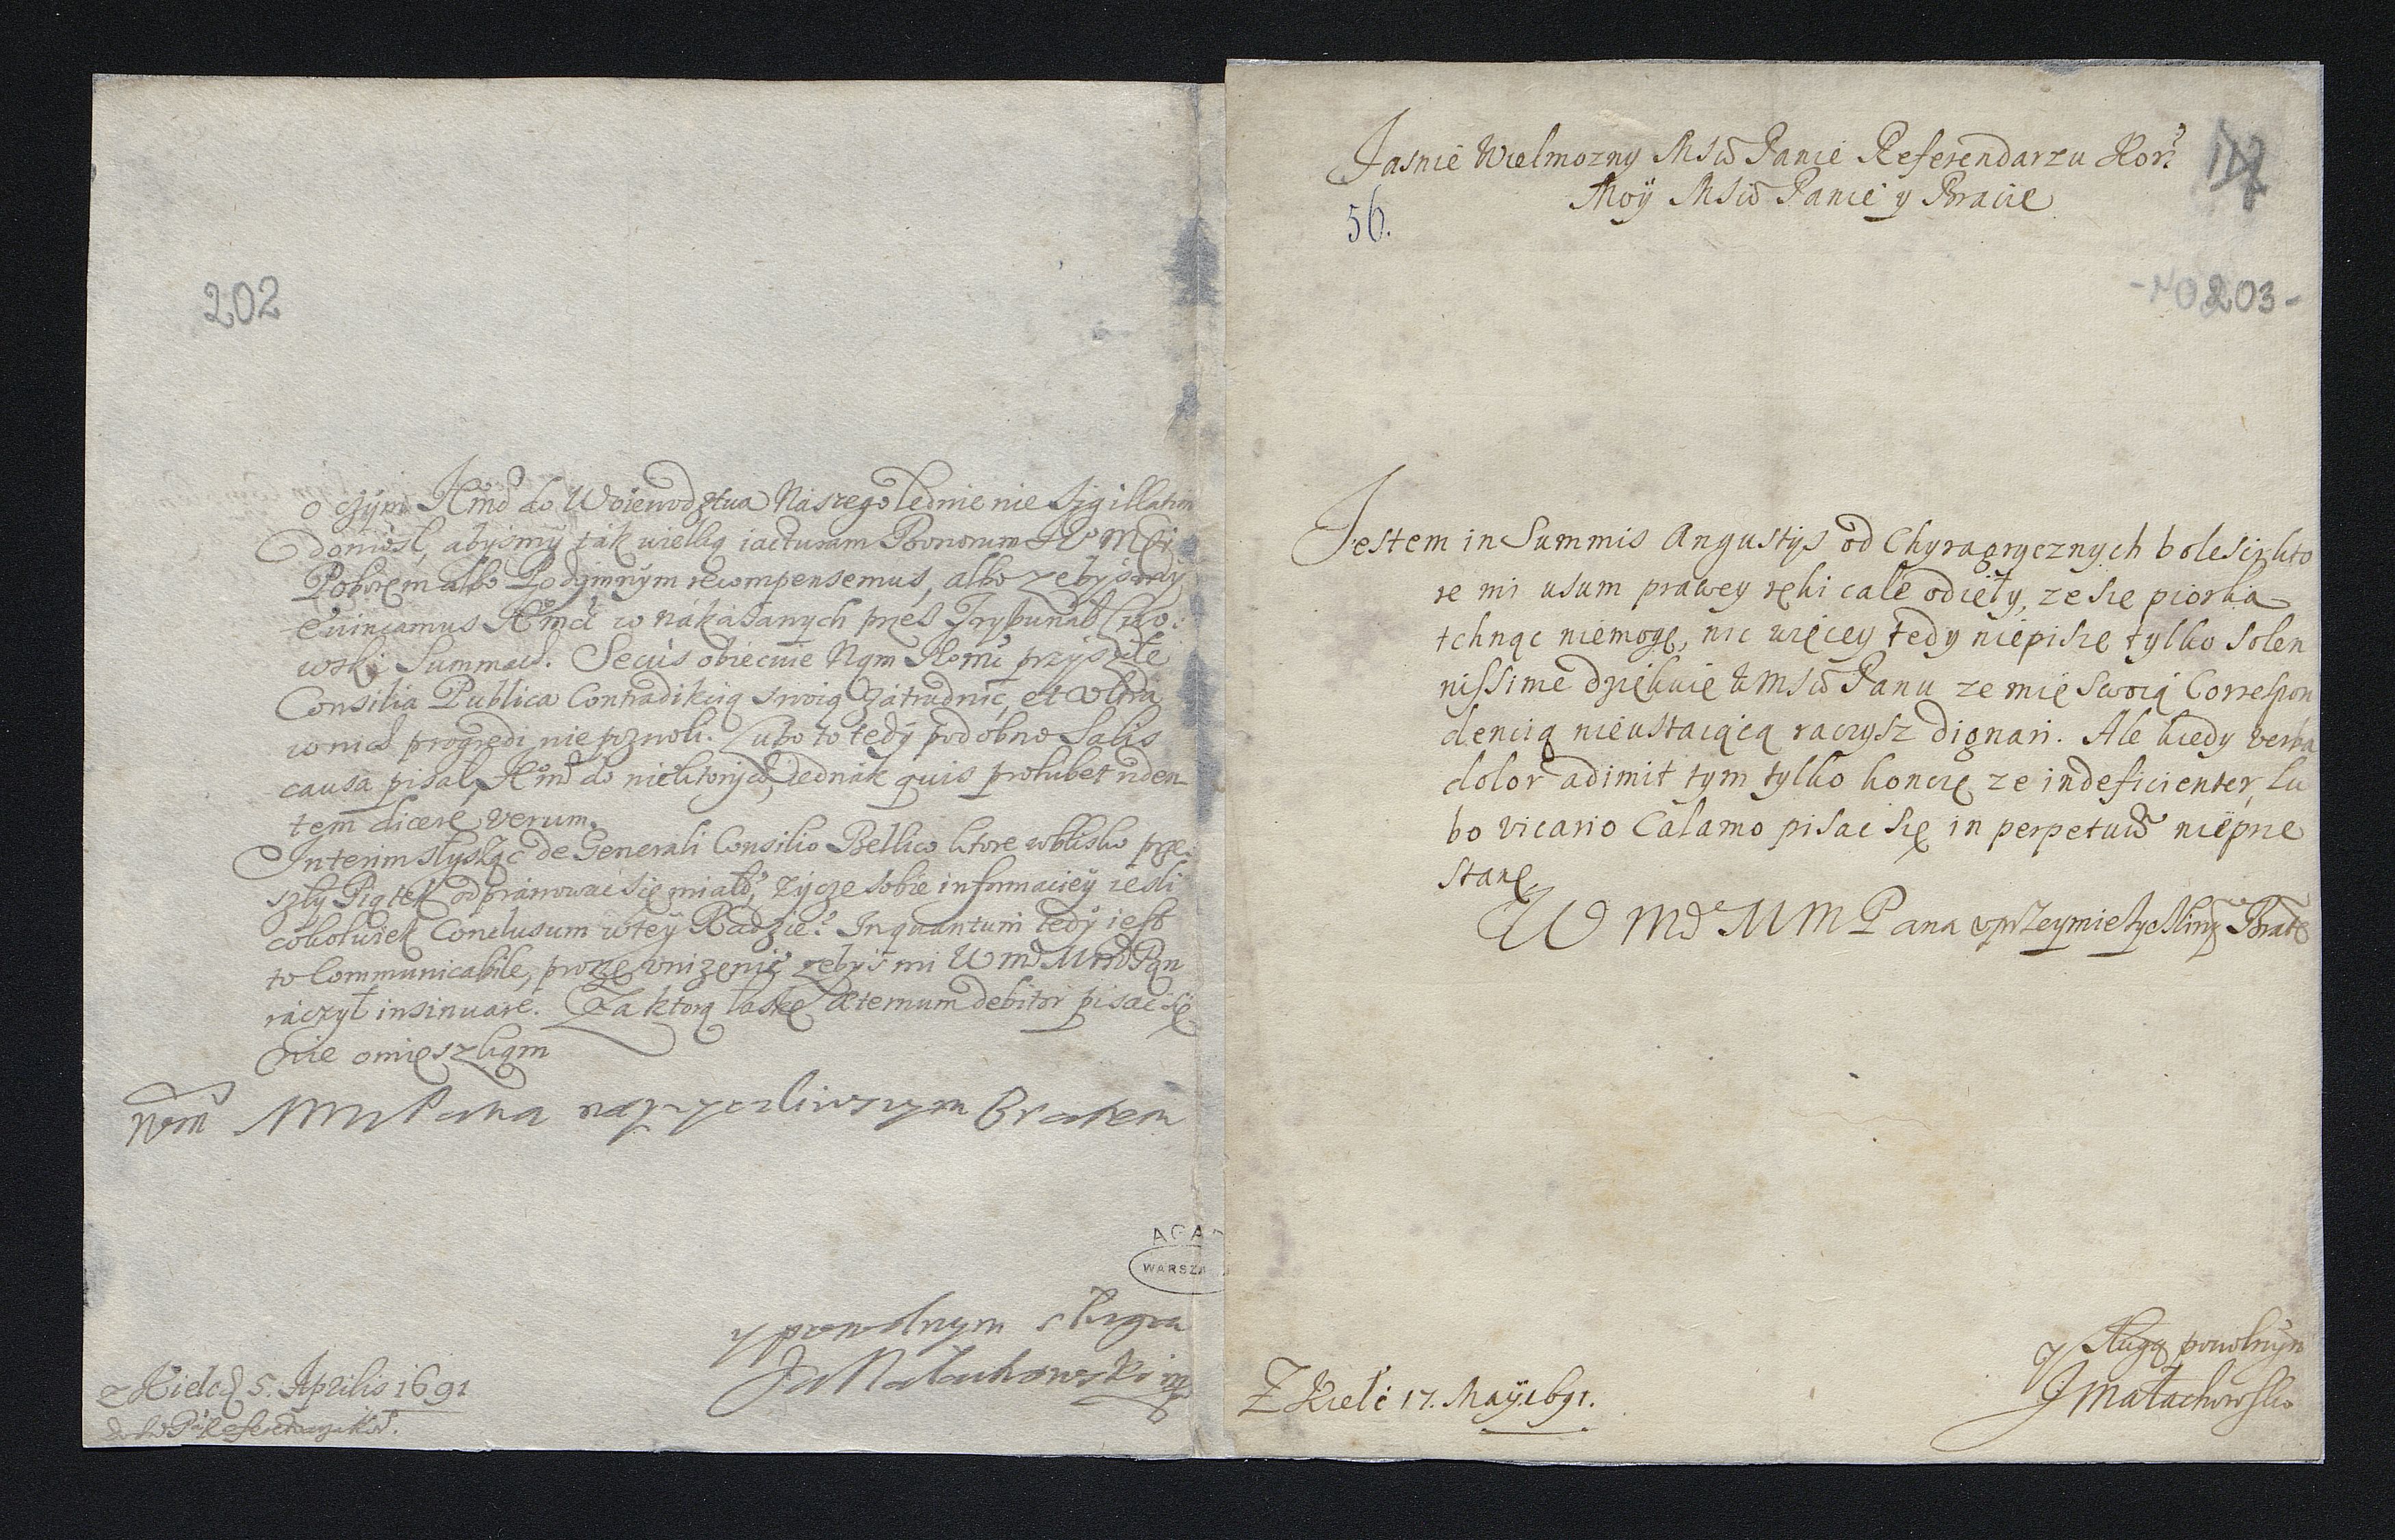 202
o czym Jmć do Woiewodztwa Naszego ledwie nie Sigillatim
doniosł, abysmy ták wielką iacturam Bonorum
Poborem albo Podymnym recompensemus, albo zebysmy
evincamus Jmći w nákazanych przez Trybunał
Summach. Secus obiecuie Nąm przyszłe
Consilia Publica Contradikcią swoią zátrudnić, et ultra
w nich progredi nie pozwoli. Lubo to tedy podobno Salis
causa pisał Jmć do niektorych, Jednák quis prohibet riden-
tem dicere verum.
Interim słysząc de Generali Consilio Bellico ktore wblisko prze-
szły Piątek odpráwowáć się miało, życze sobie informaciey iesli
cokolwiek Conclusum w tey Radzie? Inquantum tedy iest
to Communicabile, proszę vnizenie zebys mi WMć MMć Pan
ráczył insinuare. Za ktorą łaskę æternum debitor pisac się
nie omięszkąm
MM Pana nayzyczliwszym Bratem
y powolnym sługą
JaMałachowski
z Kielc d 5. Aprilis 1691
AGA
WARSZA
Jasnie Wielmozny MSciw Panie Referendarzu Kor:
Moÿ MSciw Panie y Bracie
56.
203-
Jestem in Summis Angustijs od Chyragrycznych bolesci kto
re mi usum prawey ręki cale odieły, ze się piorka
tchnąc niemogę, nic więcey tedy niepiszę tylko solen
nissime dziękuię WMSciw Panu ze mię swoią Correspon
dencią nieustaiącą raczysz dignari. Ale kiedy verba
dolor adimit tym tylko koncze ze indeficienter, lu
bo vicario Calamo pisac się in perpetuum nieprze
stanę.
W Mći MM Pana uprzeymie życzliwym Bratem
y Sługą powolnym
J Małachowski
Z Kielc 17. Maÿ 1691.